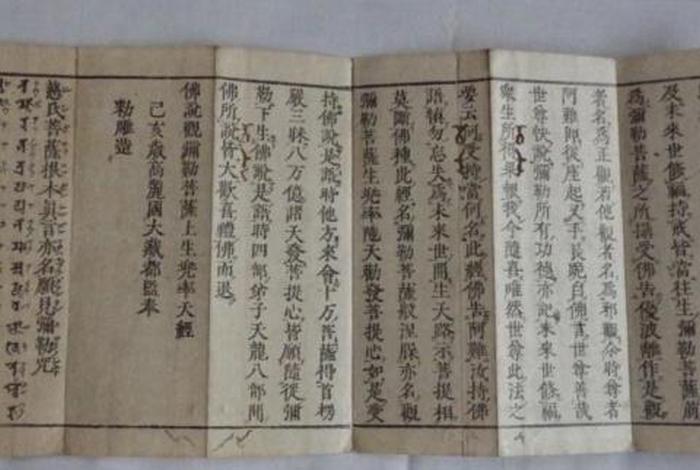 及未來世修福持戒皆當往生彌勒菩薩前
為彌勒菩薩之所攝受佛告優波離作是觀
者名為正觀若他觀者名為邪觀尒時尊者
阿難即從座起叉手長跪白佛言世尊善哉
世尊快說彌勒所有功德亦記未來世修福
衆生所得果報我今隨喜唯然世尊此法之
要云何受持當何名此經佛告阿難汝持佛
語慎勿忘失為未來世開生天路示菩提相
莫斷佛種此經名彌勒菩薩般涅槃亦名觀
彌勒菩薩生兜率陁天勸發菩提心如是受
持佛說是語時他方來會十万菩薩得首楞
嚴三昧八万億諸天發菩提心皆願隨從彌
勒下生佛說是語時四部弟子天龍八部聞
佛所說皆大歡喜禮佛而退
佛說觀彌勒菩薩上生兜率天經
己亥歲高麗國大藏都監奉
勑雕造
慈氏菩薩根本真言亦名願見彌勒呪